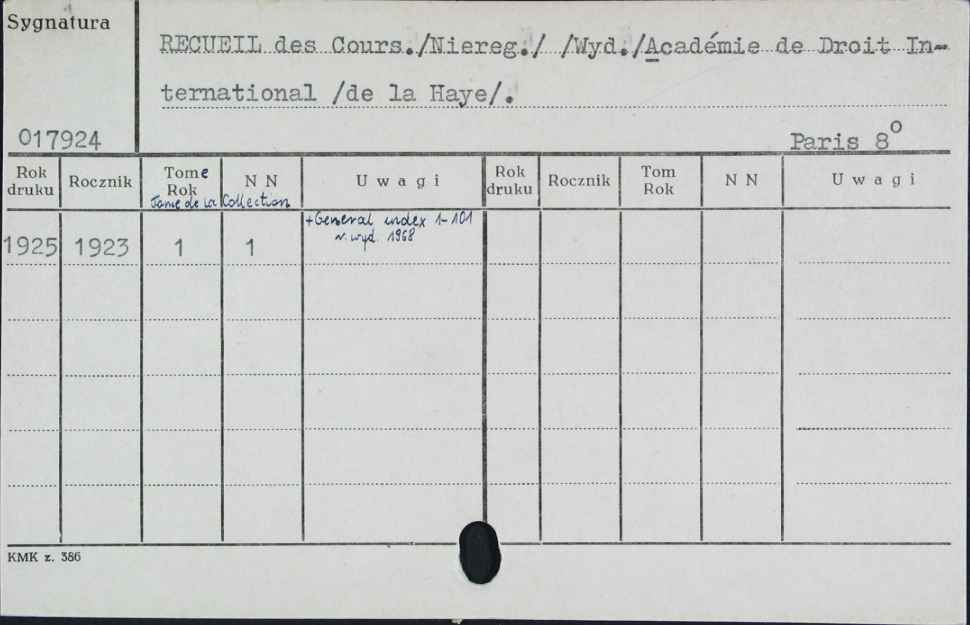 Sygnatura
RECUEIL des Cours./Niereg./ /Wyd./Académie de Droit In-
ternational /de la Haye/.
017924
Paris 8°
Rok druku Rocznik Tome Rok N N Uwagi Rok druku Rocznik Tom Rok N N Uwagi
Tome de la Collection
+General index 1-101
r. wyd. 1968
1925 1923 1 1
KMK z. 386